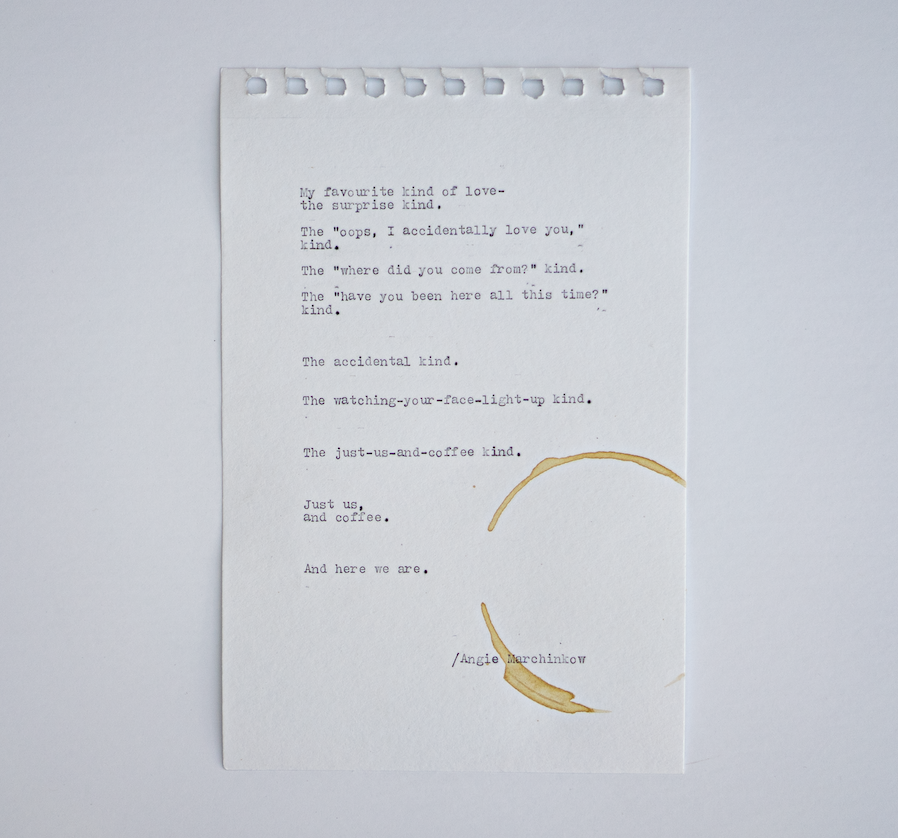 My favourite kind of love-
the surprise kind.
The "oops, I accidentally love you,"
kind.
The "where did you come from?" kind.
The "have you been here all this time?"
kind.
The accidental kind.
The watching-your-face-light-up kind.
The just-us-and-coffee kind.
Just us,
and coffee.
And here we are.
/Angie Marchinkow